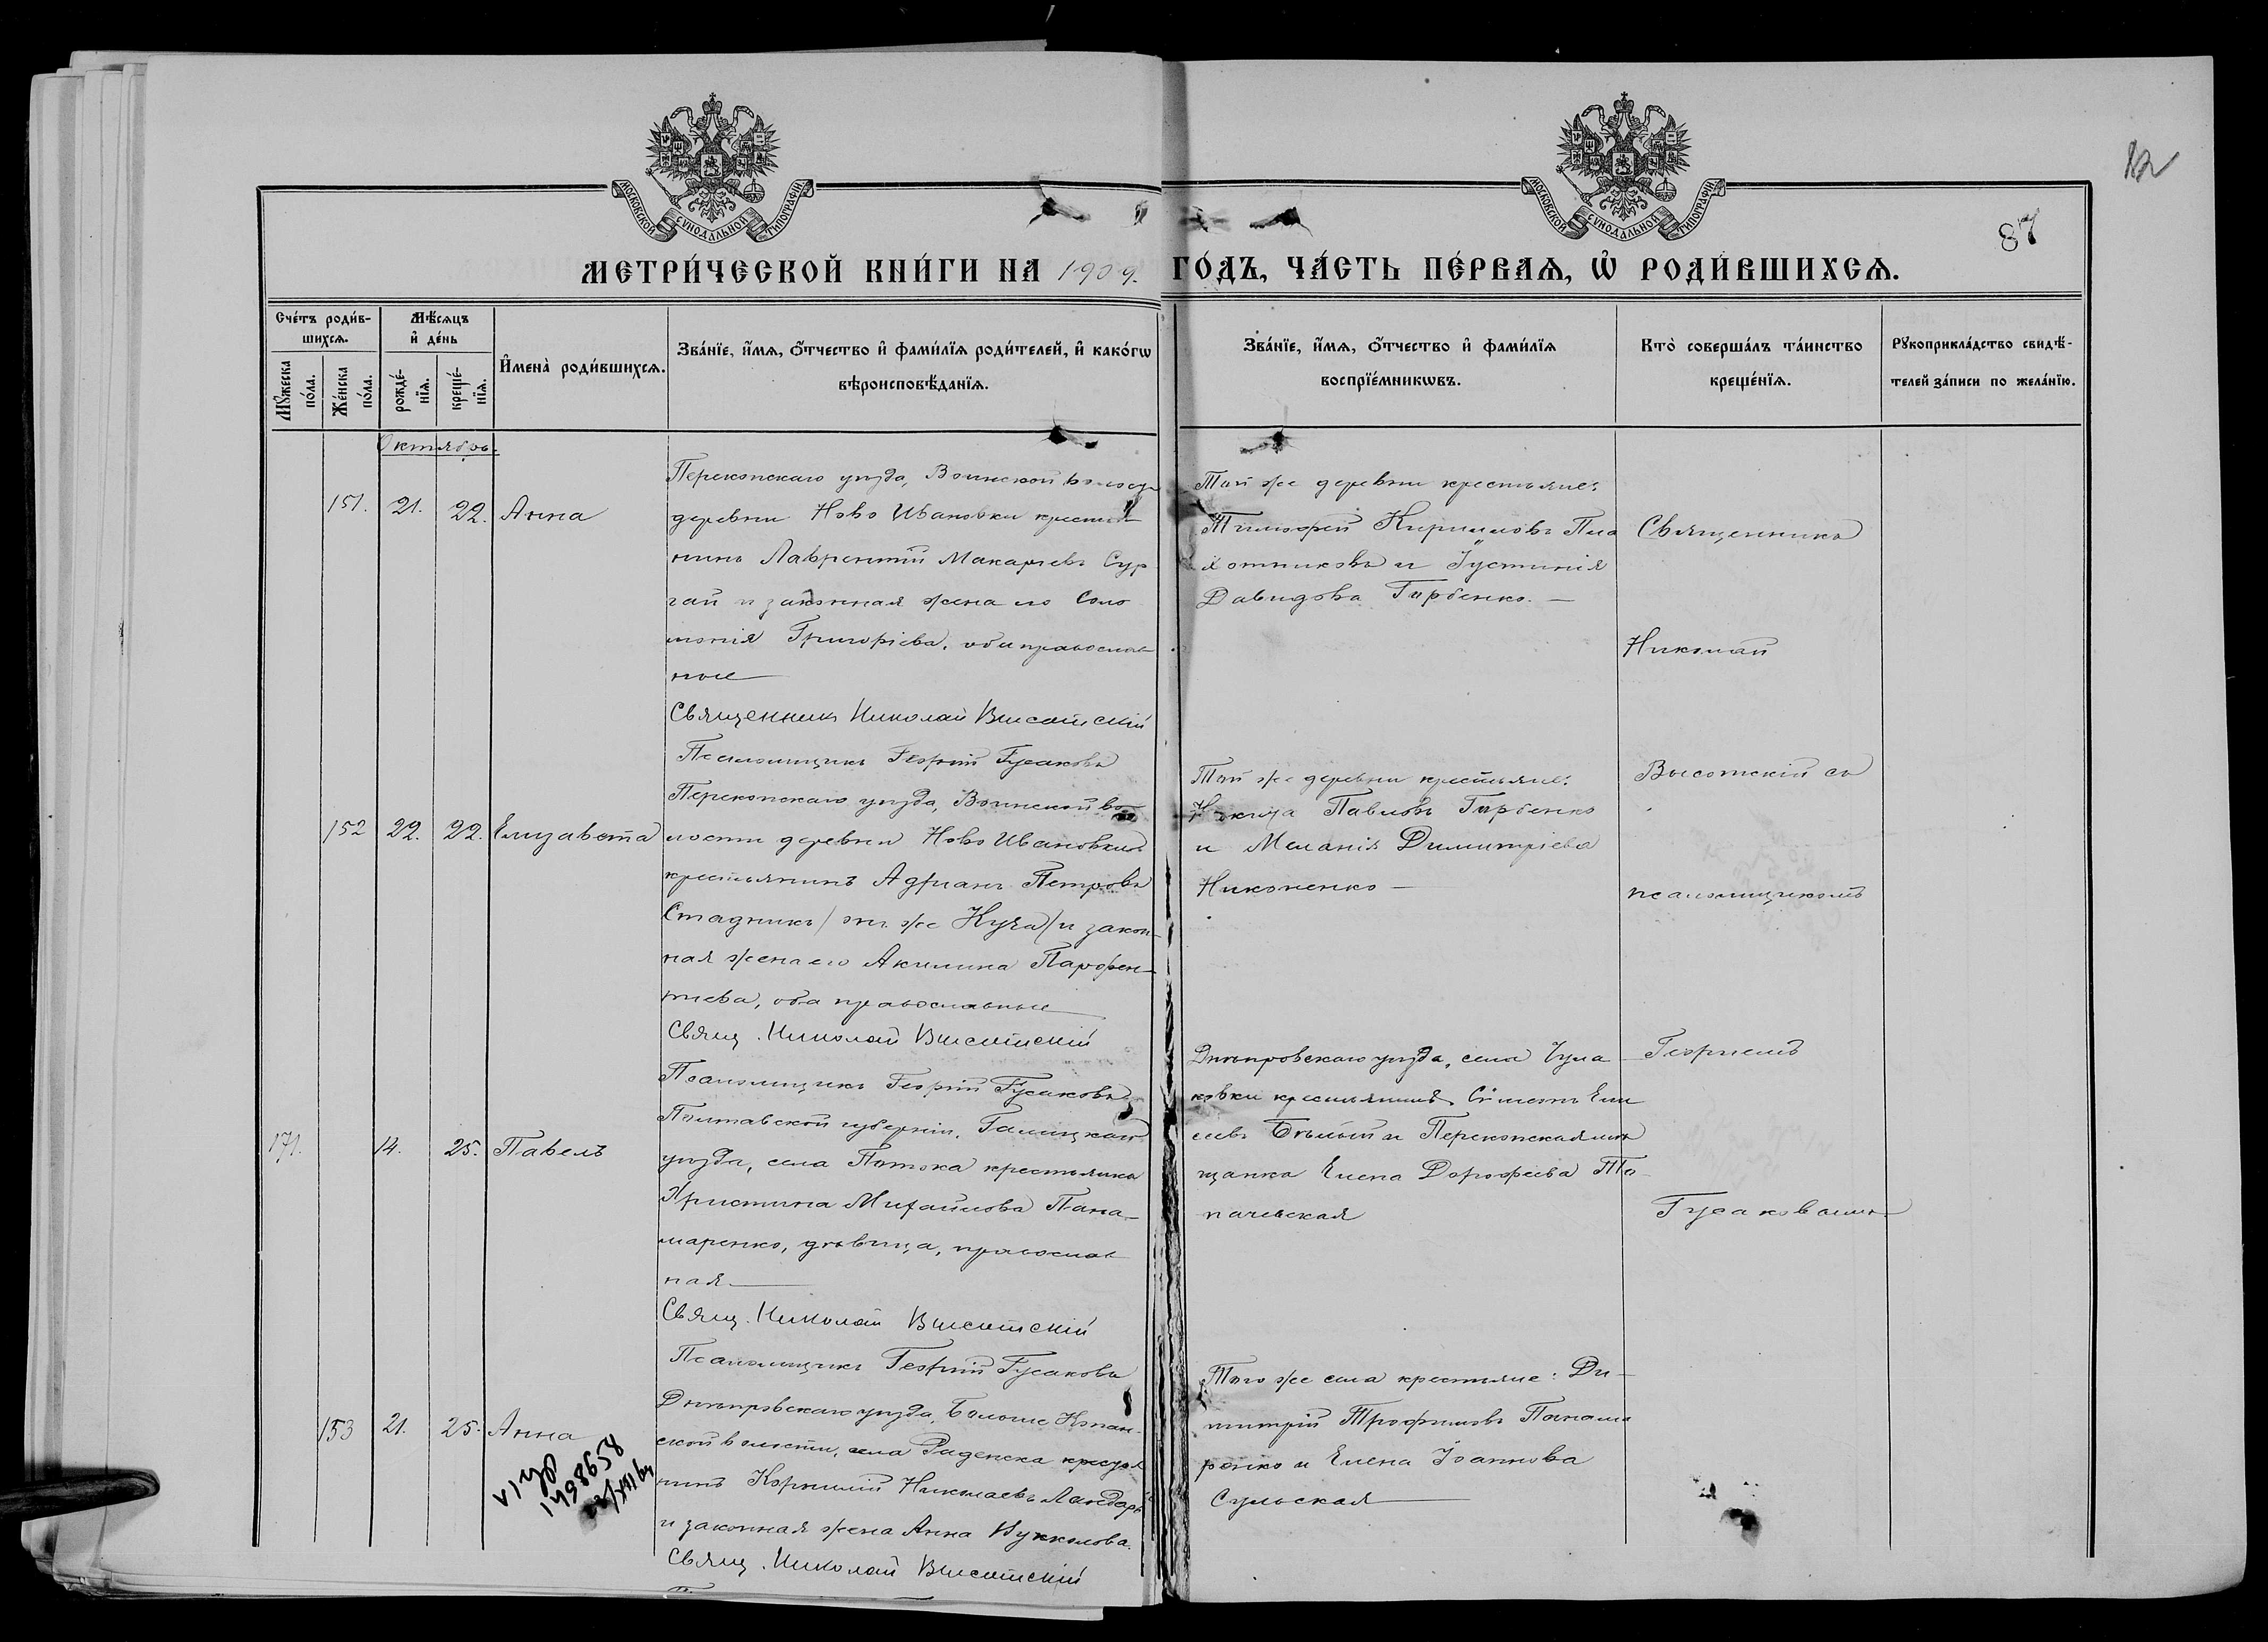 МОСКОВСКОЙ СУНОДАЛЬНОЙ ТИПОГРАФІИ
МОСКОВСКОЙ СУНОДАЛЬНОЙ ТИПОГРАФІИ
87
МЕТРИ́ЧЕСКОЙ КНИ́ГИ НА 1909. ГО́ДЪ, ЧА́СТЬ ПЕ́РВАѦ, Ѡ҆ РОДИ́ВШИХСѦ.
Сче́тъ роди́в-
шихсѧ.
Мꙋ́жеска по́ла.
Же́нска по́ла.
Мѣ́сѧцъ
и҆ де́нь
рожде́-нїѧ.
креще́-нїѧ.
И҆мена̀ роди́вшихсѧ.
Зва́нїе, и҆́мѧ, ѻ҆́тчество и҆ фами́лїѧ роди́телей, и҆ како́гѡ
вѣроисповѣ́данїѧ.
Зва́нїе, и҆́мѧ, ѻ҆́тчество и҆ фами́лїѧ
воспрїе́мникѡвъ.
Кто̀ соверша́лъ та́инство
креще́нїѧ.
Рꙋкоприкла́дство свидѣ́-
телей за́писи по жела́нїю.
Октябрь.
151. 21. 22. Анна
Перекопскаго уѣзда, Воинской волости
деревни Ново Ивановки крестья
нинъ Лаврентій Макаріевъ Сур
гай и законная жена его Соло
монія Григоріева, оба православ
ные
Священникъ Николай Высотскій
Псаломщикъ Георгій Гусаковъ
Той же деревни крестьяне:
Тимофей Кирилловъ Пла
хотниковъ и Іустинія
Давидова Горбенко. —
Священникъ
Николай
Высотскій съ
псаломщикомъ
Георгіемъ
Гусаковымъ
152 22. 22. Елизавета
Перекопскаго уѣзда, Воинской во
лости деревни Ново Ивановки
крестьянинъ Адріанъ Петровъ
Стадникъ / онъ же Куча / и закон-
ная жена его Акилина Парфен-
тіева, оба православные
Свящ. Николай Высотскій
Псаломщикъ Георгій Гусаковъ
Той же деревни крестьяне:
Никита Павловъ Горбенко
и Меланія Димитріева
Никоненко —
171. 14. 25. Павелъ
Полтавской губерніи,
уѣзда, села Потока крестьянка
Христина Михайлова Пана-
маренко, дѣвица, православ
ная
Свящ. Николай Высотскій
Псаломщикъ Георгій Гусаковъ
Днѣпровскаго уѣзда, села Чула
ковки крестьянинъ Симеонъ Ели
сеевъ Бѣлый и Перекопская мѣ
щанка Елена Дорофеева То
153 21. 25. Анна
Днѣпровскаго уѣзда, Больше Копан-
ской волости, села Раденска крестья
нинъ Корнилій Николаевъ Ландарь
и законная жена Анна
Свящ. Николай Высотскій
Того же села крестьяне: Ди-
митрій Трофимовъ Панама
ренко и Елена Іоаннова
Сульская